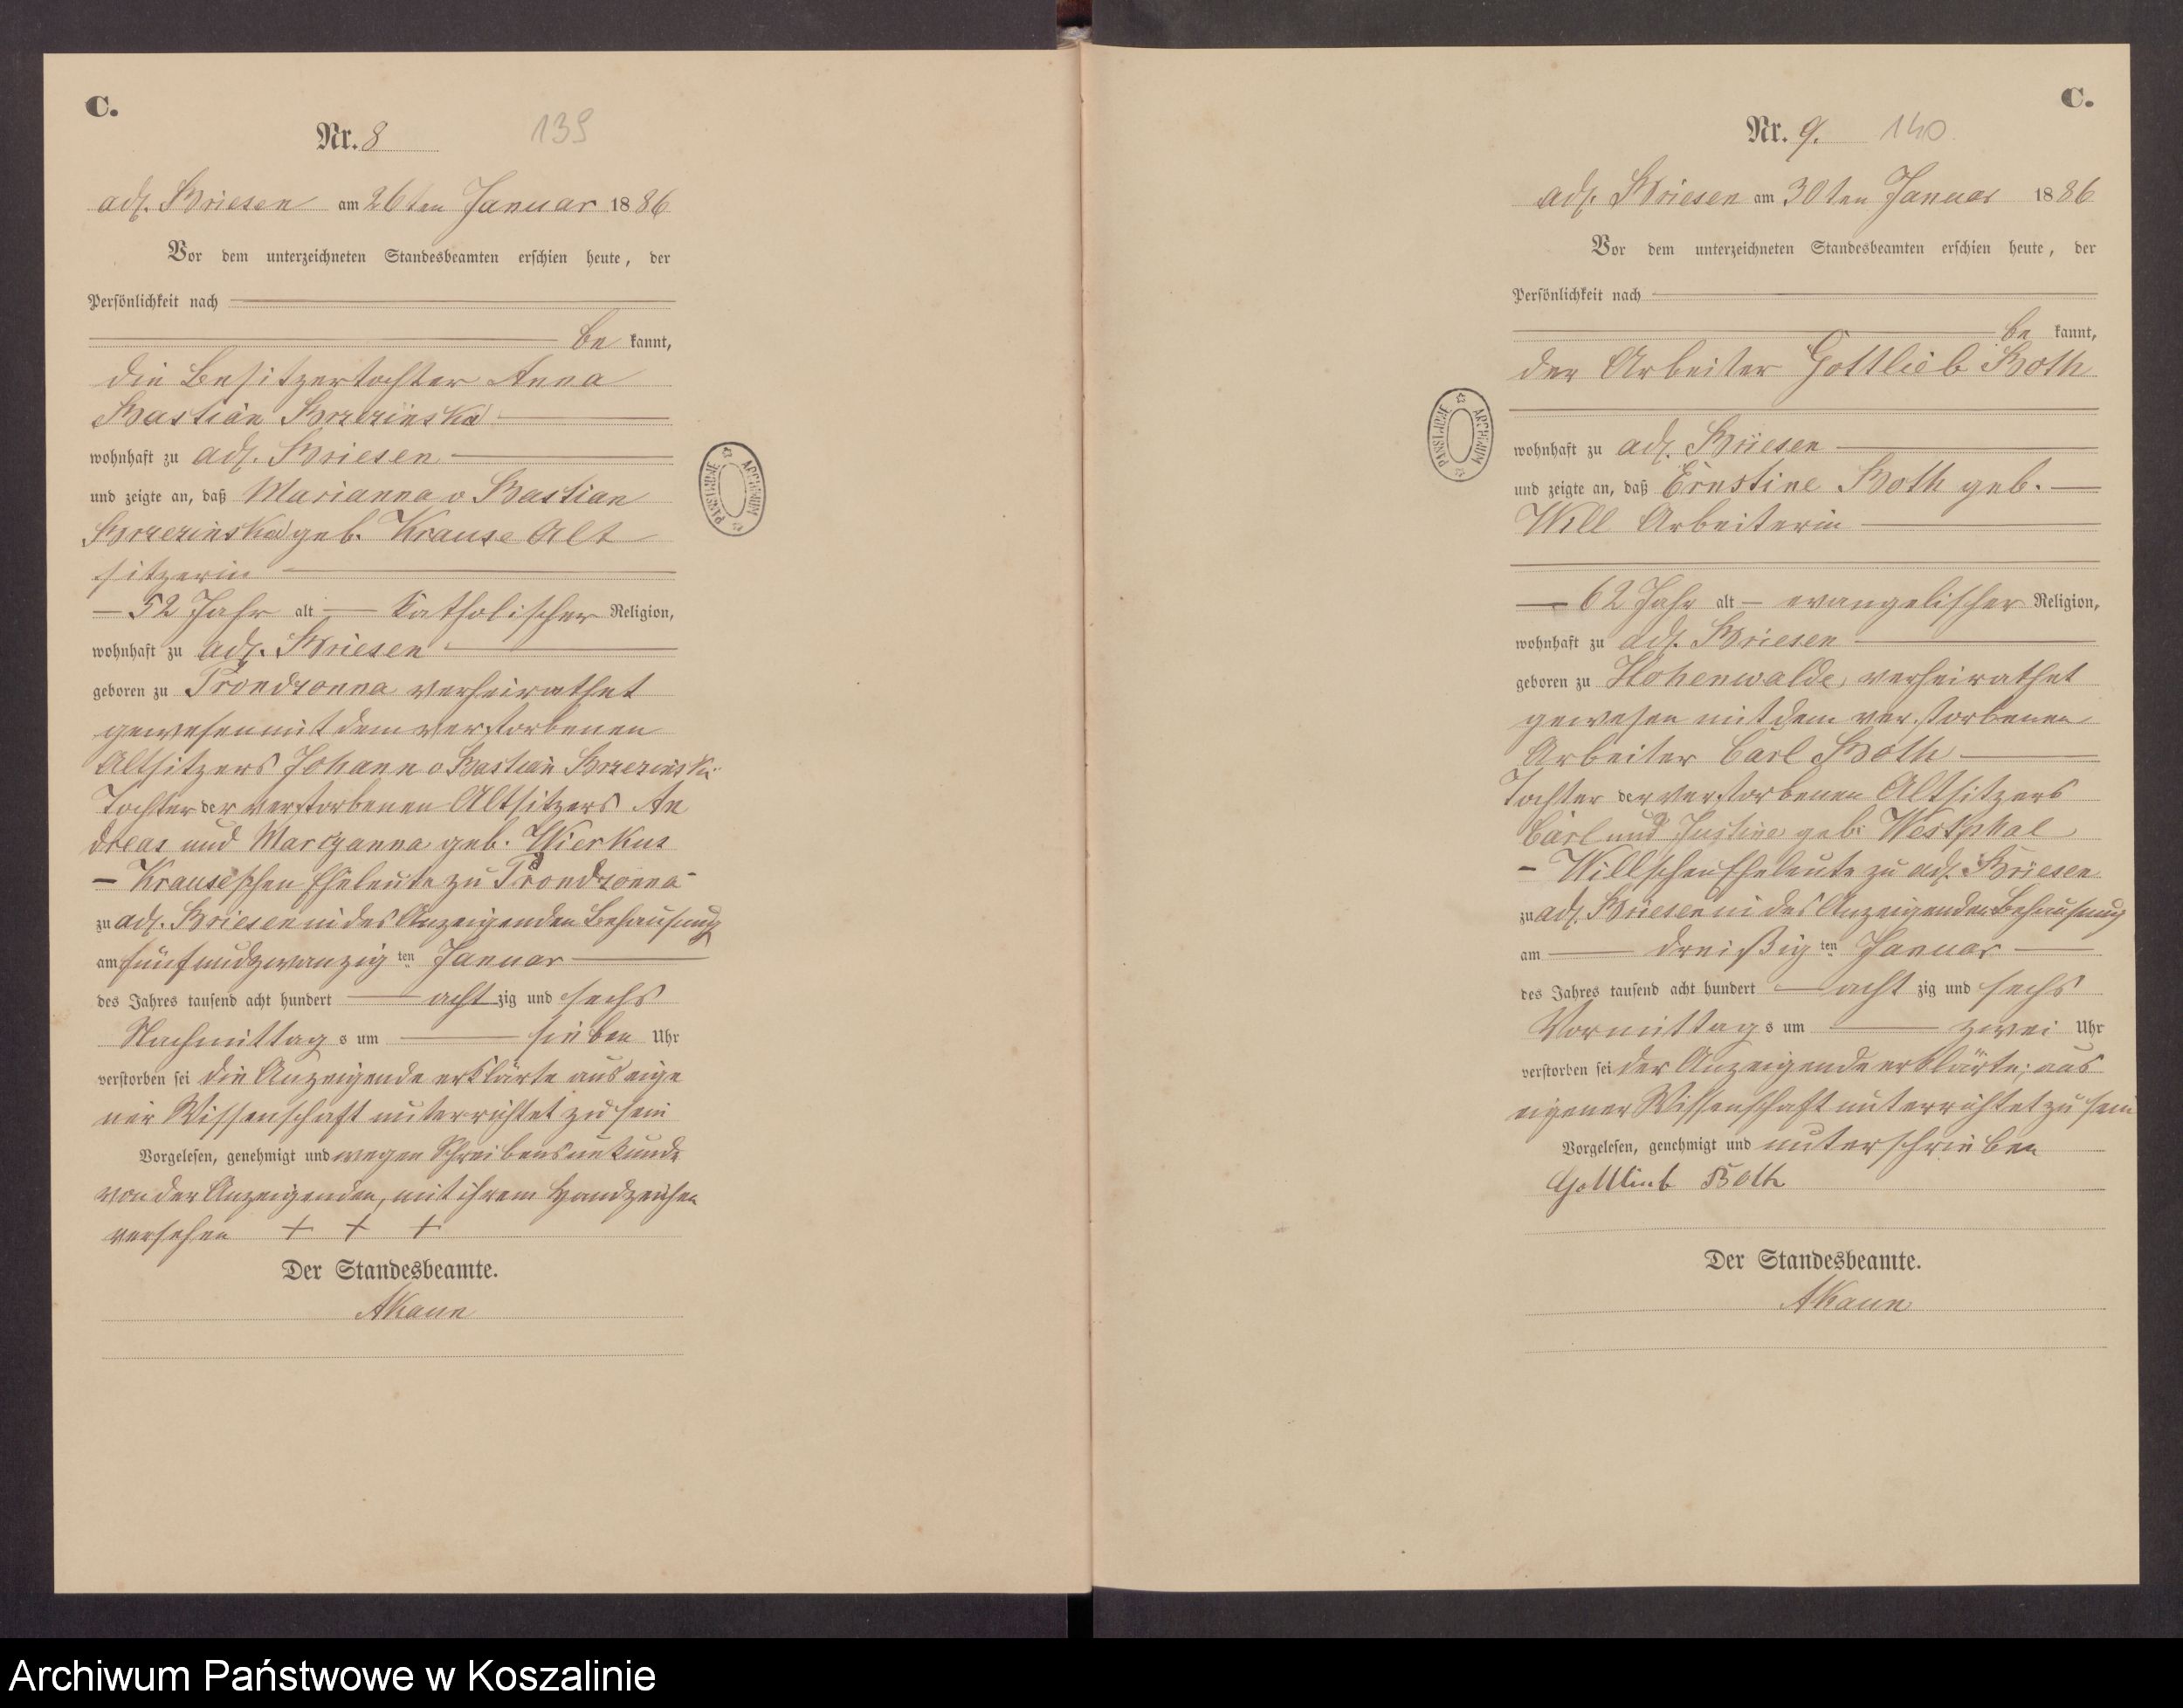 C.
Nr. 8 139
adl. Briesen am 26ten Januar 1886
Vor dem unterzeichneten Standesbeamten erschien heute, der
Persönlichkeit nach
be kannt,
die Besitzertochter Anna
Bastian Brzezinska
wohnhaft zu adl. Briesen
und zeigte an, daß Marianna v Bastian
Brzezinska geb. Krause Alt
sitzerin
52 Jahr alt katholischer Religion,
wohnhaft zu adl. Briesen
geboren zu Prondzonna verheirathet
gewesen mit dem verstorbenen
Altsitzers Johann v Bastian Brzezinski
Tochter der verstorbenen Altsitzers An
dreas und Maryanna geb. Wierkus
Krause'schen Eheleute zu Prondzonna
zu adl. Briesen in des Anzeigenden Behausung
am fünfundzwanzig ten Januar
des Jahres tausend acht hundert acht zig und sechs
Nachmittag s um sieben Uhr
verstorben sei die Anzeigende erklärte aus eige
ner Wissenschaft unterrichtet zu sein
Vorgelesen, genehmigt und wegen Schreibensunkunde
von der Anzeigenden, mit ihrem Handzeichen
versehen + + +
Der Standesbeamte.
AKaun
PAŃSTWOWE ARCHIWUM
C.
Nr. 9. 140
adl. Briesen am 30ten Januar 1886
Vor dem unterzeichneten Standesbeamten erschien heute, der
Persönlichkeit nach
be kannt,
der Arbeiter Gottlieb Both
wohnhaft zu adl. Briesen
und zeigte an, daß Ernstine Both geb.
Will Arbeiterin
62 Jahr alt evangelischer Religion,
wohnhaft zu adl. Briesen
geboren zu Hohenwalde, verheirathet
gewesen mit dem verstorbenen
Arbeiter Carl Both
Tochter der verstorbenen Altsitzers
Carl und Justine geb. Westphal
Willschen Eheleute zu adl. Briesen
zu adl. Briesen in des Anzeigenden Behausung
am dreißig ten Januar
des Jahres tausend acht hundert acht zig und sechs
Vormittag s um zwei Uhr
verstorben sei der Anzeigende erklärte, aus
eigener Wissenschaft unterrichtet zu sein
Vorgelesen, genehmigt und unterschrieben
Gottlieb Both
Der Standesbeamte.
AKaun
PAŃSTWOWE ARCHIWUM
Archiwum Państwowe w Koszalinie